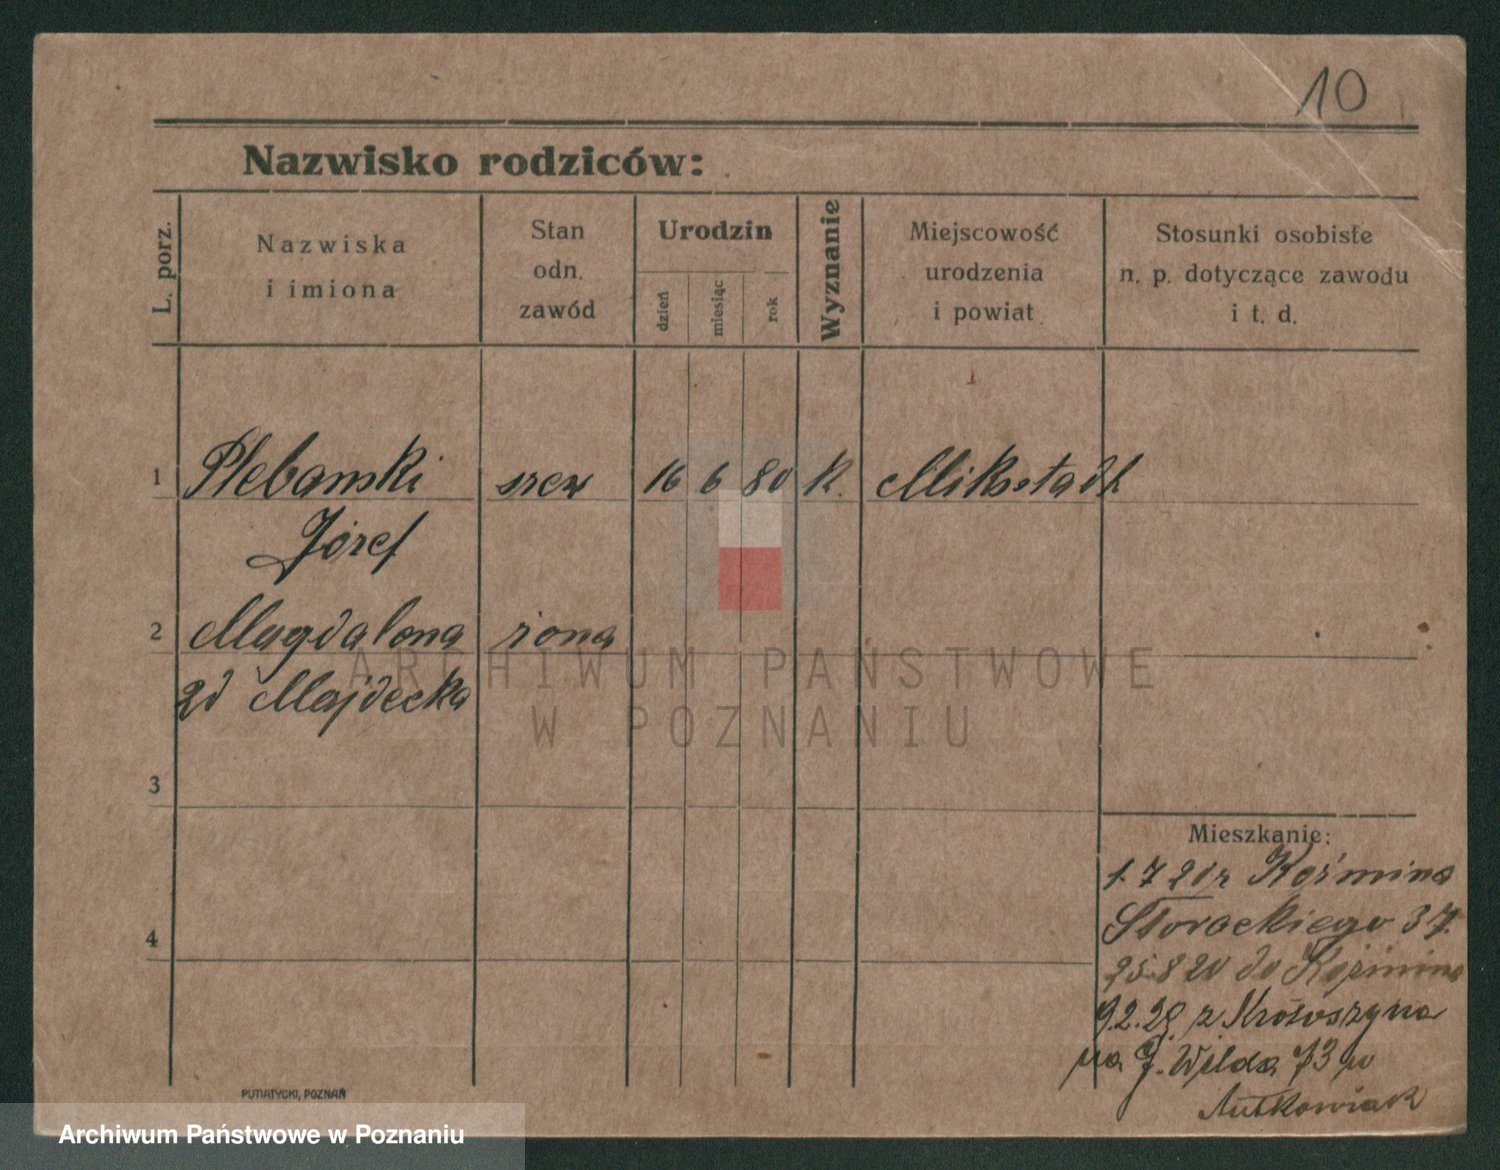 10
Nazwisko rodziców:
L. porz.
Nazwiska
i imiona
Stan
odn.
zawód
Urodzin
dzień
miesiąc
rok
Wyznanie
Miejscowość
urodzenia
i powiat
Stosunki osobiste
n. p. dotyczące zawodu
i t. d.
1 Plebanski szew 16 6 80 k. Miksstadt
Józef
2 Magdalena żona
zd Majdecka
ARCHIWUM PAŃSTWOWE
W POZNANIU
3
4
Mieszkanie:
1. 7 20 z Koźmina
Słowackiego 37.
25.8 20 do Koźmina
9.2.28 z Krotoszyna
na G. Wilda 73 w
Lutkowiak
PUTIATYCKI, POZNAŃ
Archiwum Państwowe w Poznaniu